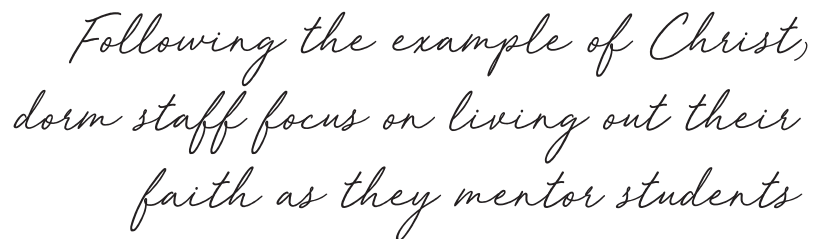 Following the example of Christ,
dorm staff focus on living out their
faith as they mentor students